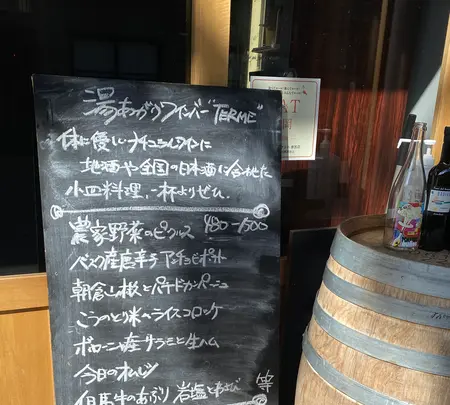 湯あがりワインバー"TERME"
体に優しいナチュラルワインに
地酒や全国の日本酒に合わせた
小皿料理、一杯よりぜひ。
農家野菜のピクルス 480-1500
バスク産唐辛子アンチョビポテト
朝倉山椒とパテドカンパーニュ
こうのとり米のライスコロッケ
ボローニャ産サラミと生ハム
今日のオムレツ
但馬牛のあぶり 岩塩とわさび 等